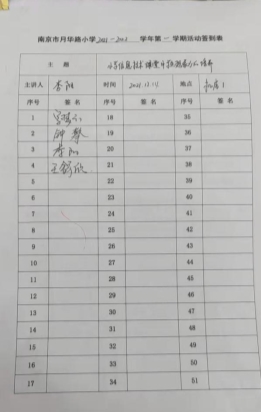 南京市月华路小学2021-2022学年第一学期活动签到表
主 题 小学信息技术课堂中
主讲人 李阳 时间 2021.12.17 地点
序号 签 名 序号 签 名 序号 签 名
1 18 35
2 19 36
3 李阳 20 37
4 王 21 38
5 22 39
6 23 40
7 24 41
8 25 42
9 26 43
10 27 44
11 28 45
12 29 46
13 30 47
14 31 48
15 32 49
16 33 50
17 34 51